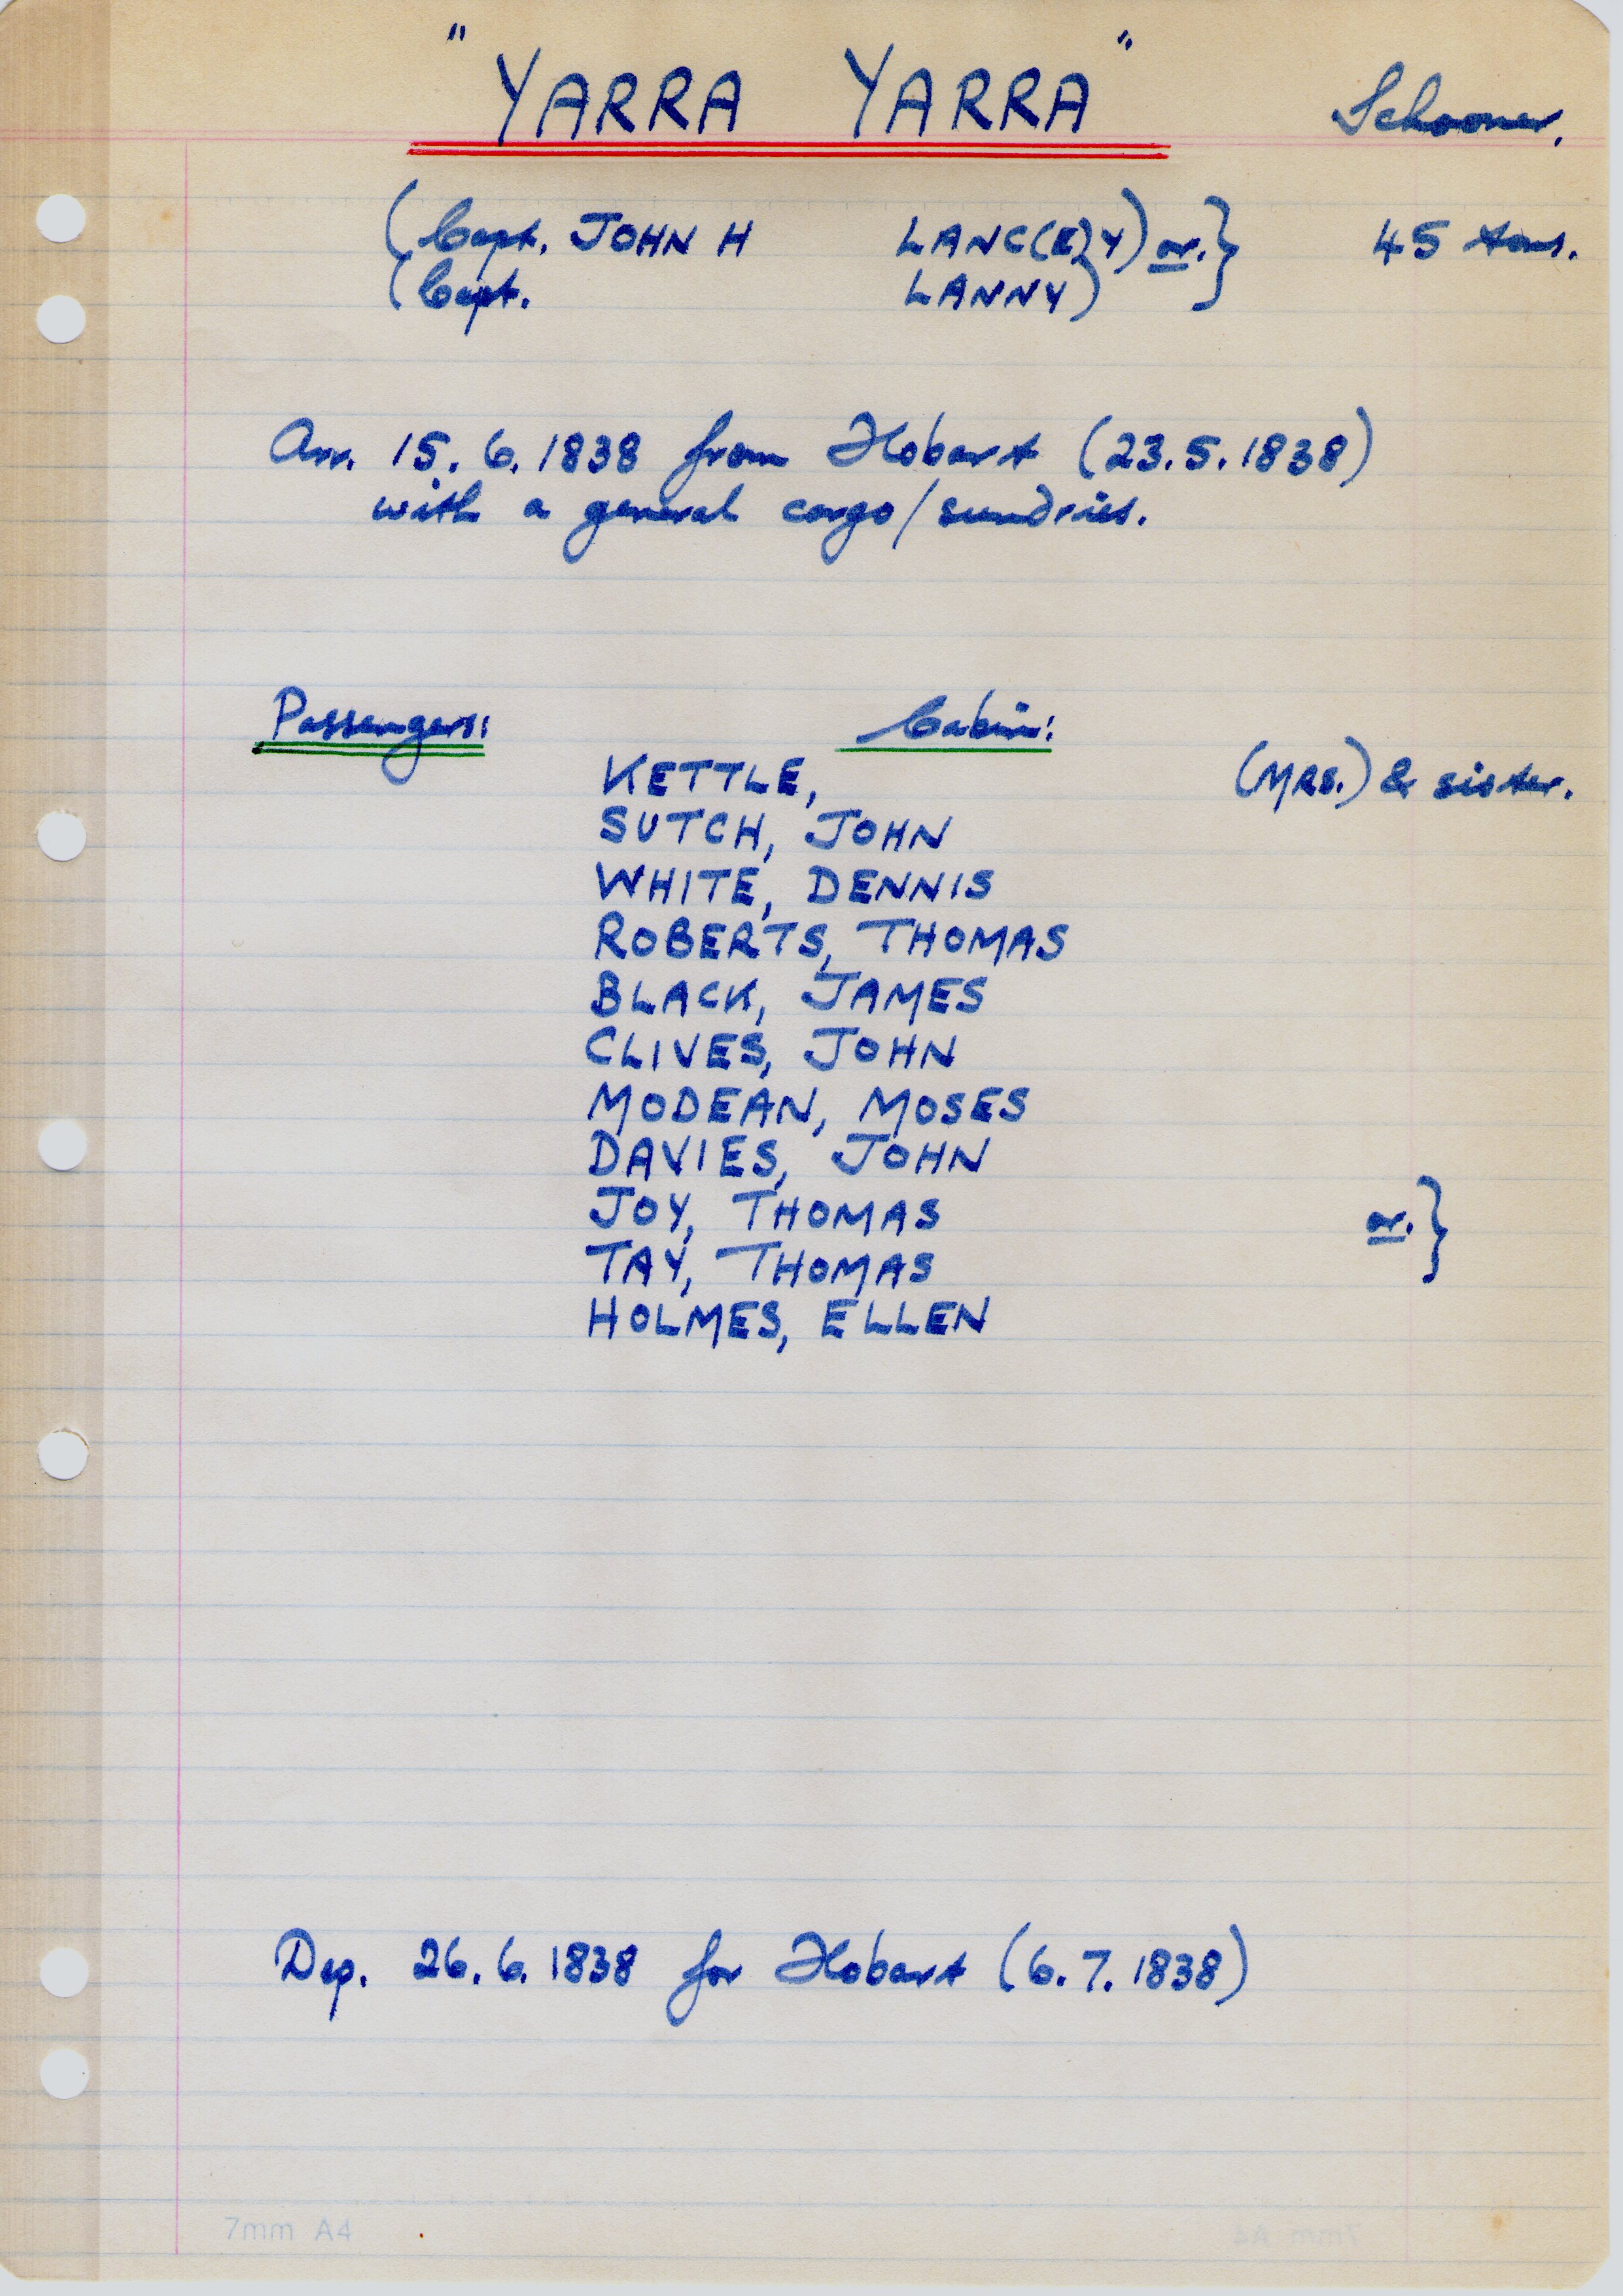 "YARRA YARRA" Schooner.
(Capt. JOHN H LANC(E)Y) or.} 45 tons.
(Capt. LANNY)
Arr. 15.6.1838 from Hobart (23.5.1838)
with a general cargo/sundries.
Passengers: Cabin:
KETTLE, (MRS.) & sister.
SUTCH, JOHN
WHITE, DENNIS
ROBERTS, THOMAS
BLACK, JAMES
CLIVES, JOHN
MODEAN, MOSES
DAVIES, JOHN
JOY, THOMAS or.}
TAY, THOMAS
HOLMES, ELLEN
Dep. 26.6.1838 for Hobart (6.7.1838)
7mm A4